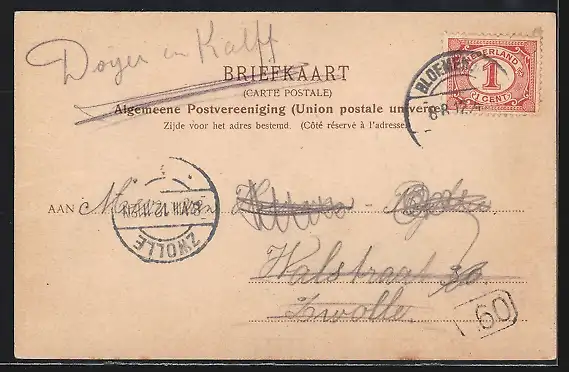 Doyer en Kalff
BRIEFKAART
(CARTE POSTALE)
Algemeene Postvereeniging (Union postale universelle)
Zijde voor het adres bestemd. (Côté réservé à l'adresse)
NEDERLAND
1
1 CENT
BLOEMEN
AAN M
ZWOLLE
Walstraat 30.
Zwolle.
60